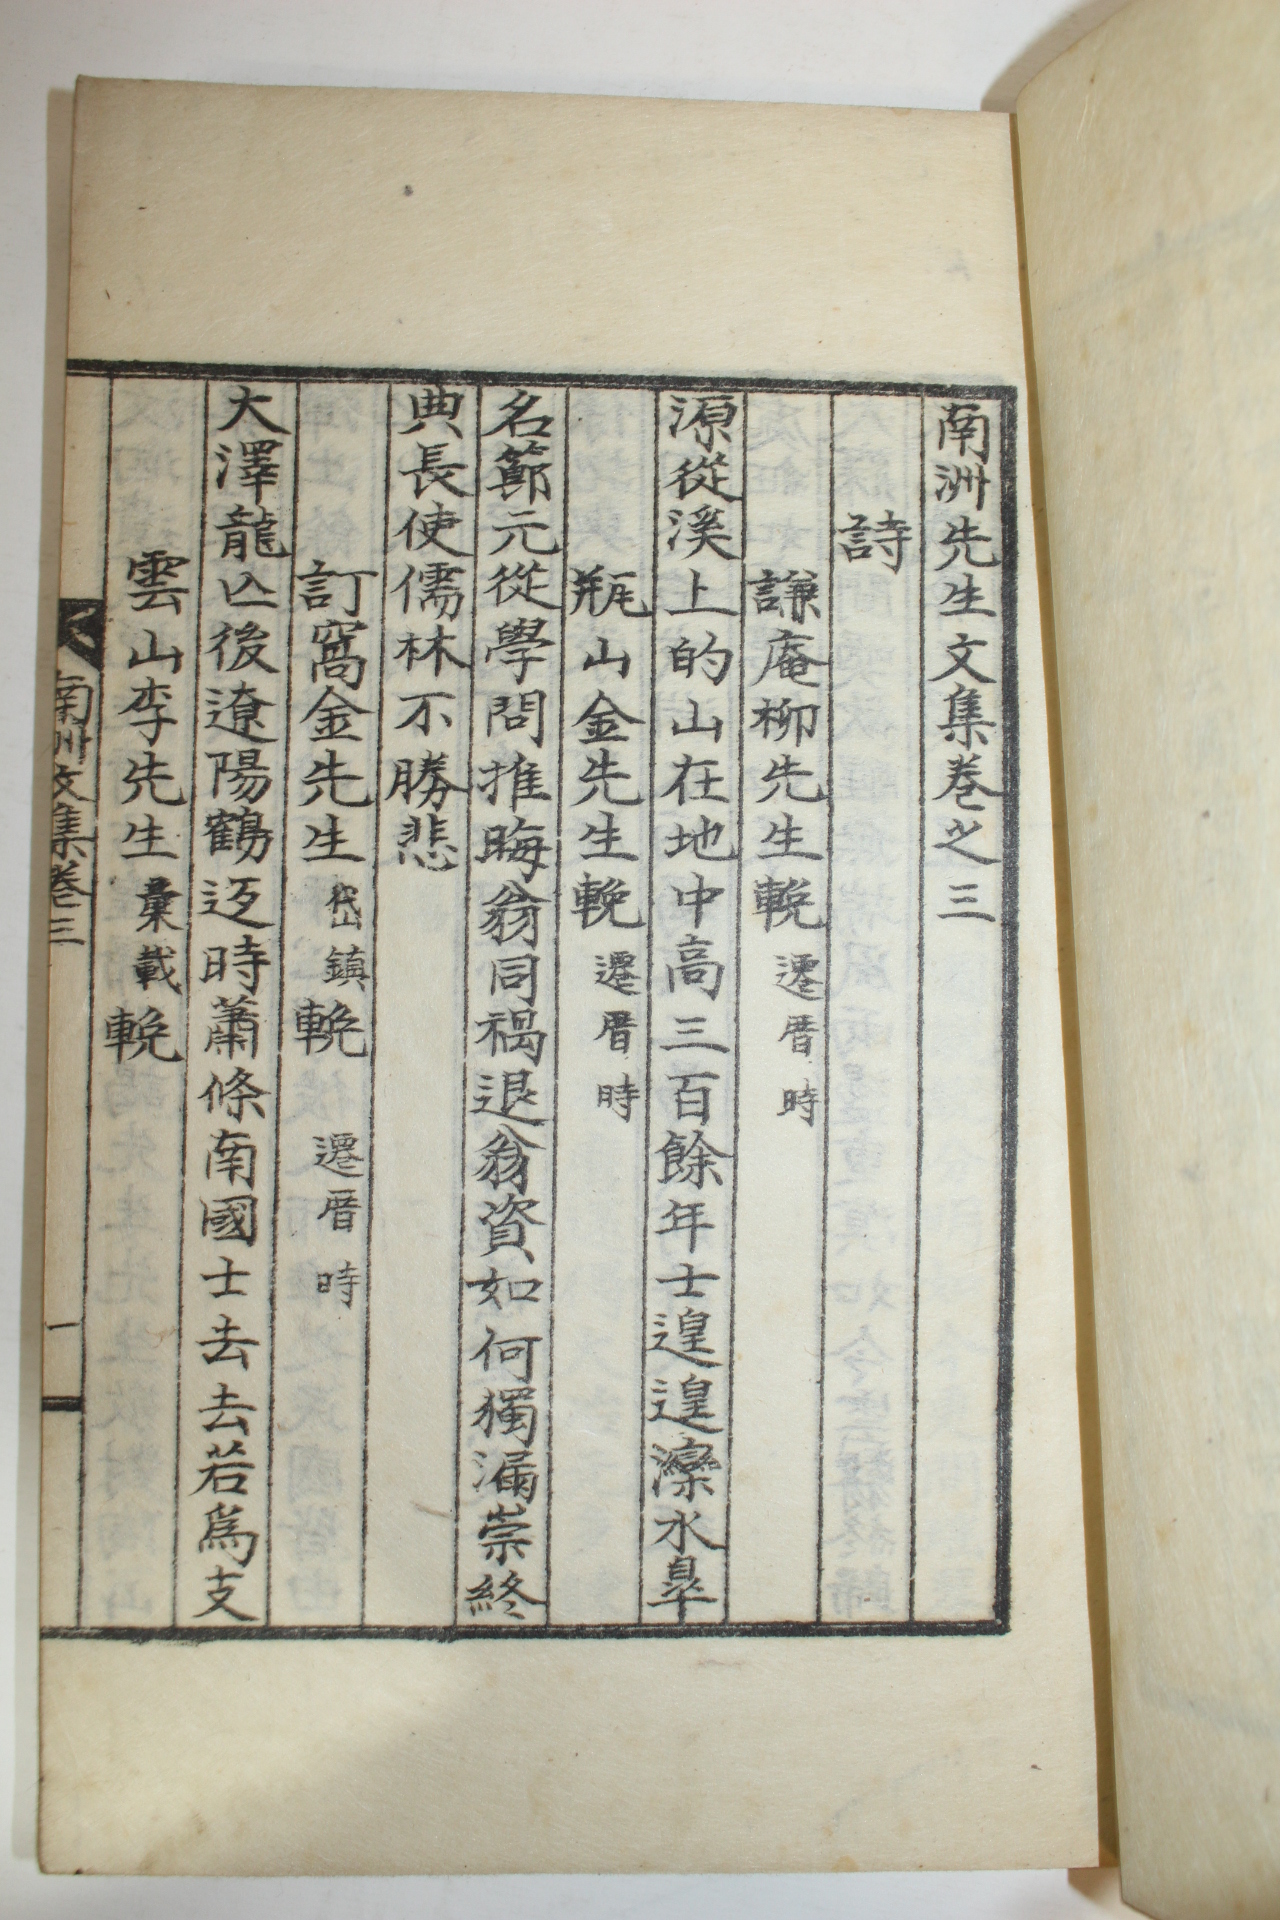 南洲先生文集卷之三
詩
謙庵柳先生輓 遷厝時
源從溪上的山在地中高三百餘年士遑遑灤水皐
甁山金先生輓 遷厝時
名節元從學問推晦翁同禍退翁資如何獨漏崇終
典長使儒林不勝悲
訂窩金先生 岱鎮 輓 遷厝時
大澤龍亾後遼陽鶴返時蕭條南國士去去若爲支
雲山李先生 彙載 輓
南洲文集卷三
一